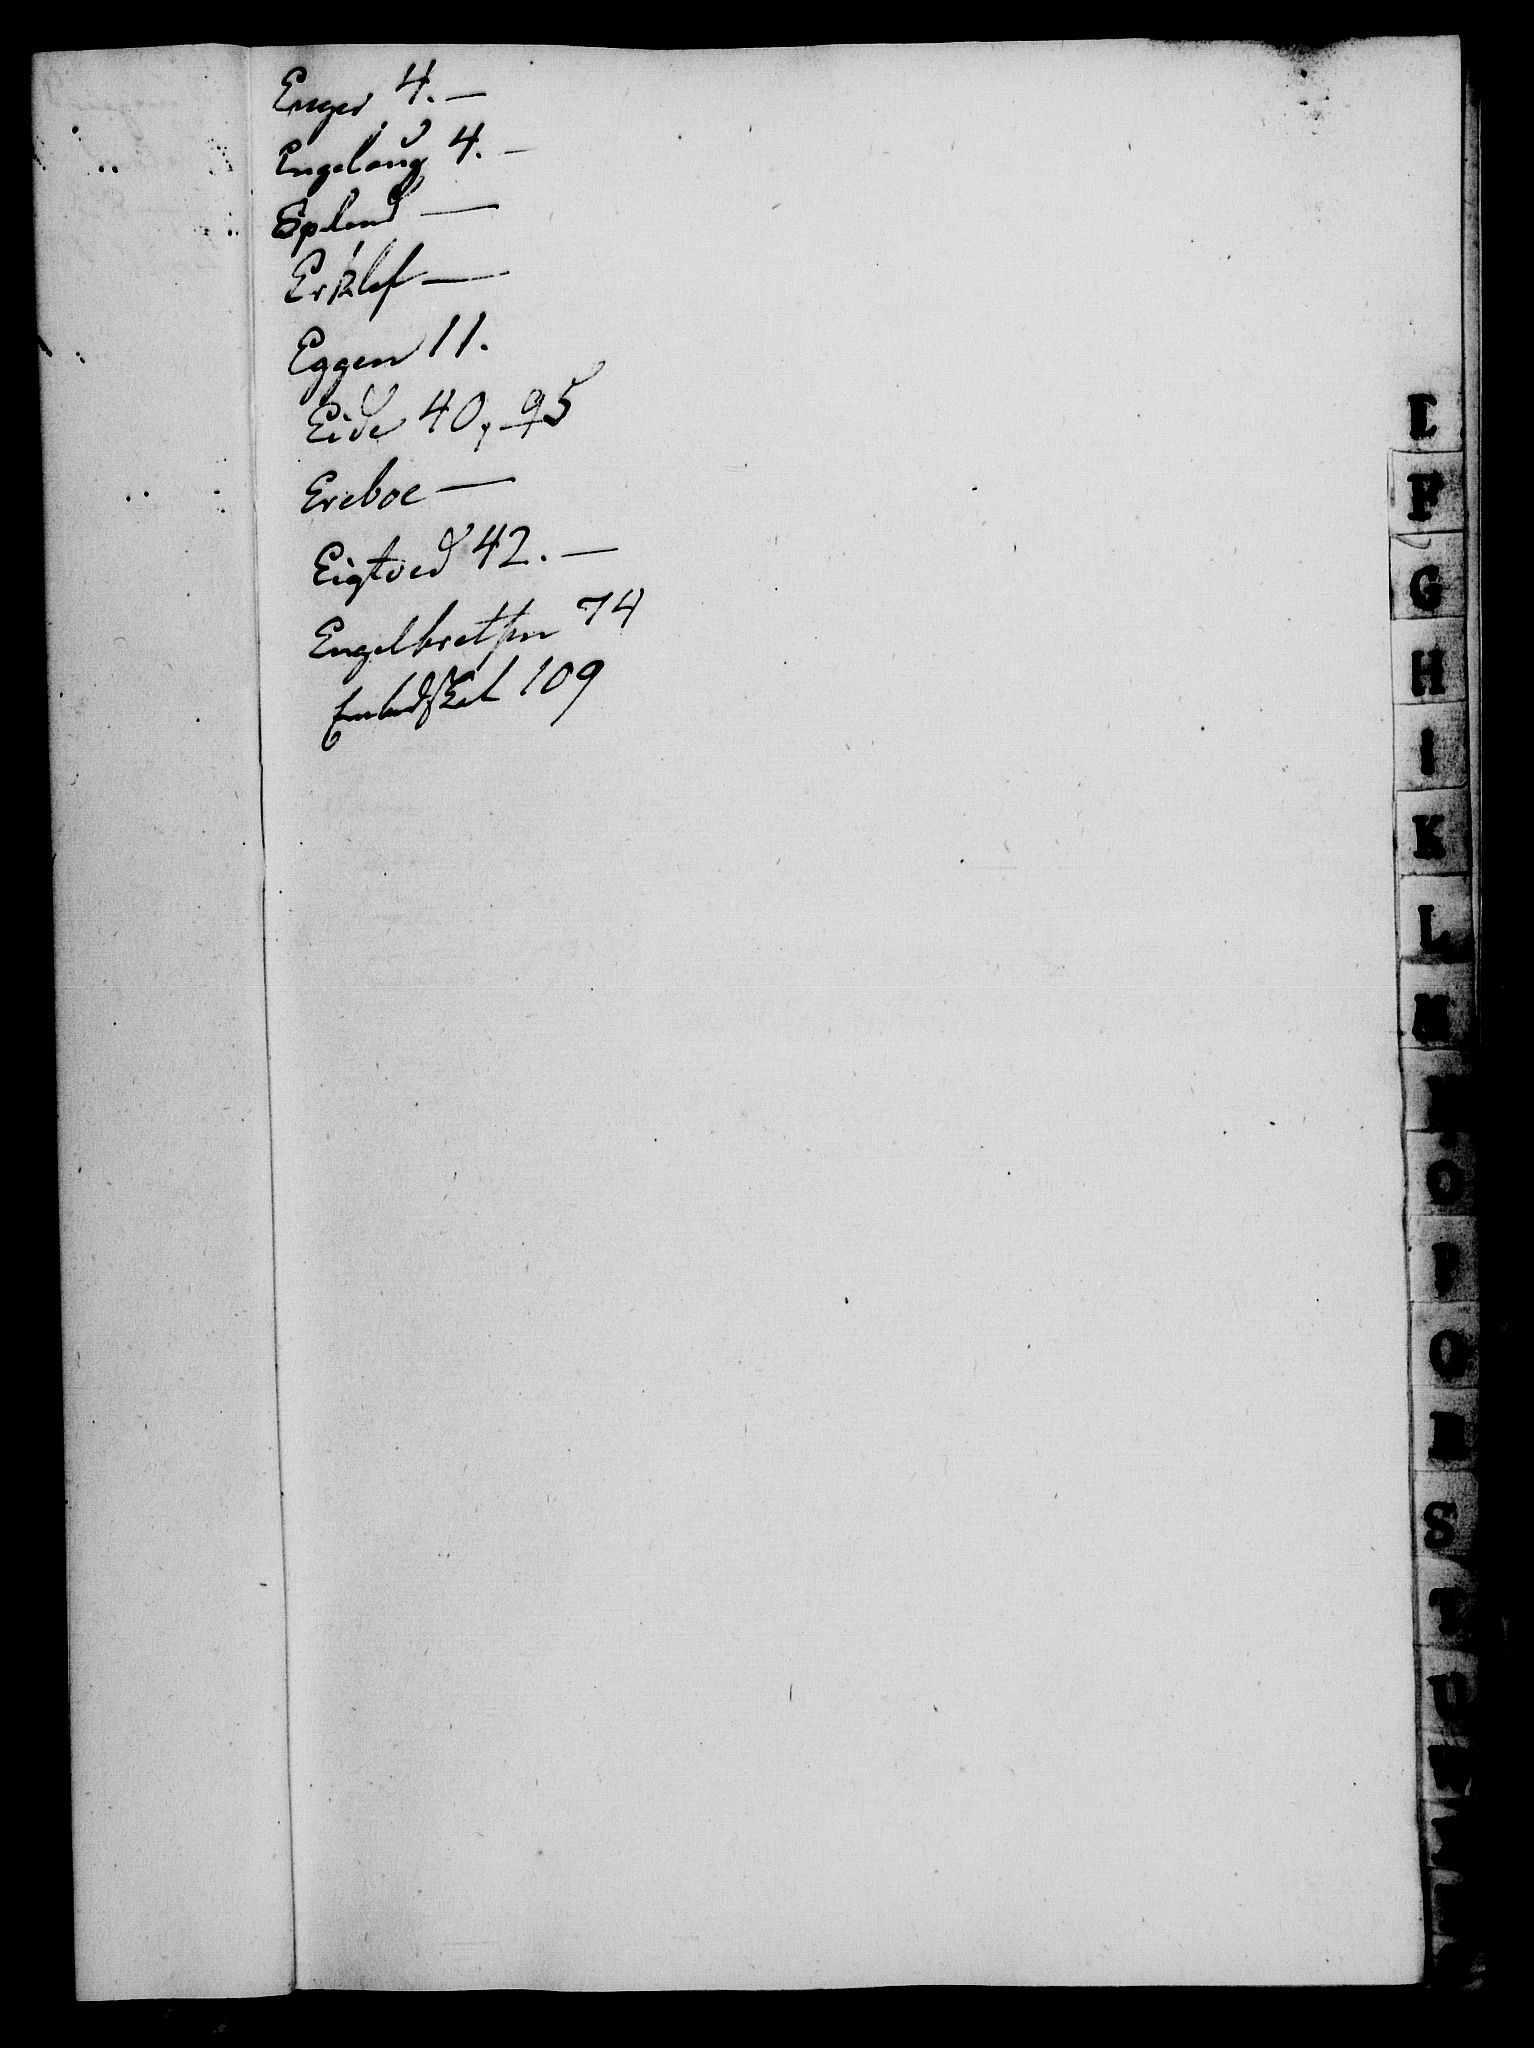 Enger 4. —
Engelaug 4. —
Epland —
Erslef —
Eggen 11.
Eide 40, 95
Ereboe —
Eigtved 42. —
Engelbretsen 74
109
E
F
G
H
I
K
L
M
N
O
P
Q
R
S
T
U